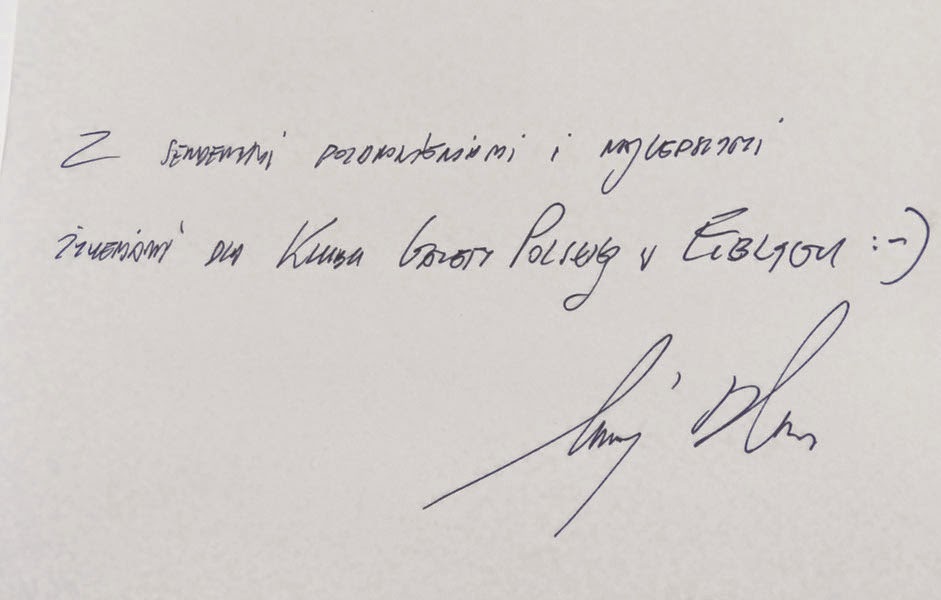 Z SERDECZNYMI POZDROWIENIAMI I NAJLEPSZYMI
ŻYCZENIAMI DLA KLUBU GAZETY POLSKIEJ W ELBLĄGU :-)